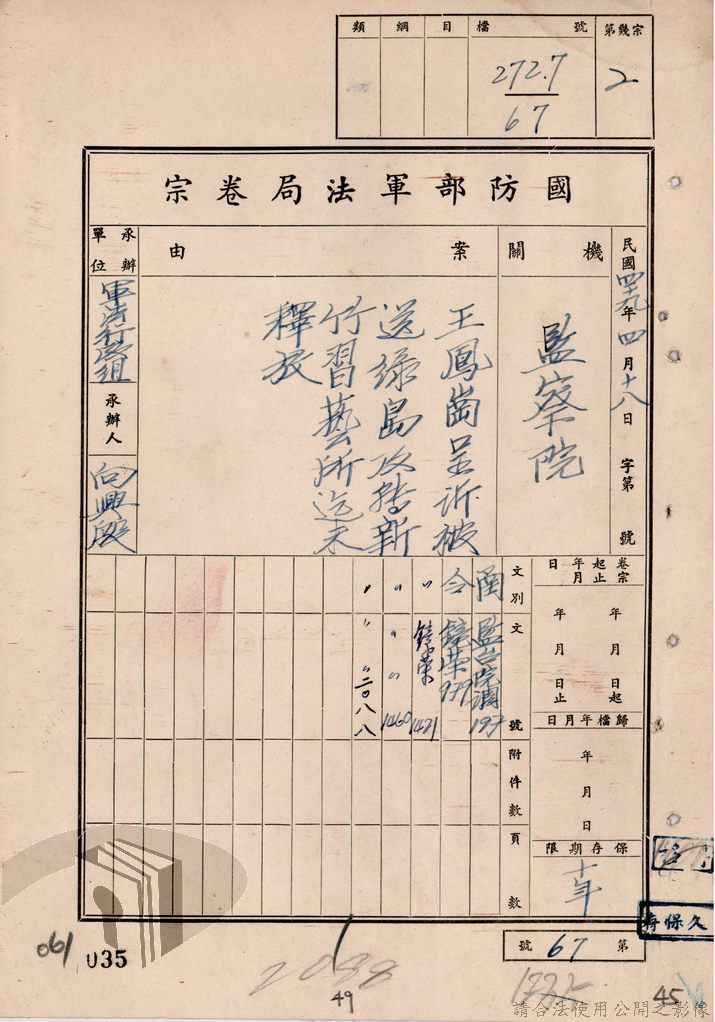 類 綱 目 檔號 第幾宗
272.7
67
2
國防部軍法局卷宗
民國四九年四月十八日 字第 號
機關
監察院
案由
王鳳崗呈訴被
送綠島及轉新
竹習藝所迄未
釋放
承辦單位
軍法行政組
承辦人
向興殷
卷宗起止年月日
年 月 日起
年 月 日止
歸檔年月日
年 月 日
保存期限
十年
文別 文號 附件數 頁數
函 監台院調 197
令 鐘榮 979
〃 鐘榮 1421
〃 〃 〃 1460
〃 〃 〃 二〇八八
第 67 號
久保存
061
035
2088
49
45
請合法使用公開之影像